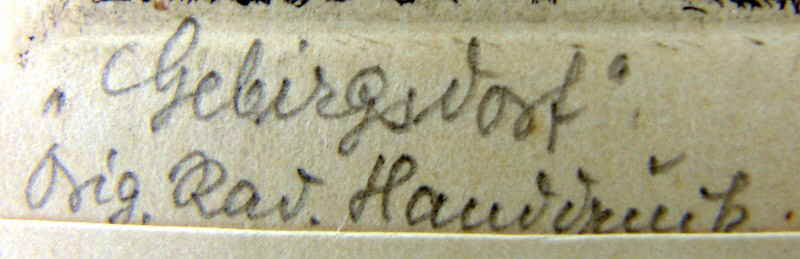 „Gebirgsdorf“.
Orig. Rad. Handdruck.